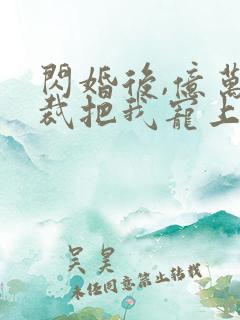 閃婚後,億萬
裁把我寵上
吴昊
未经同意禁止转载